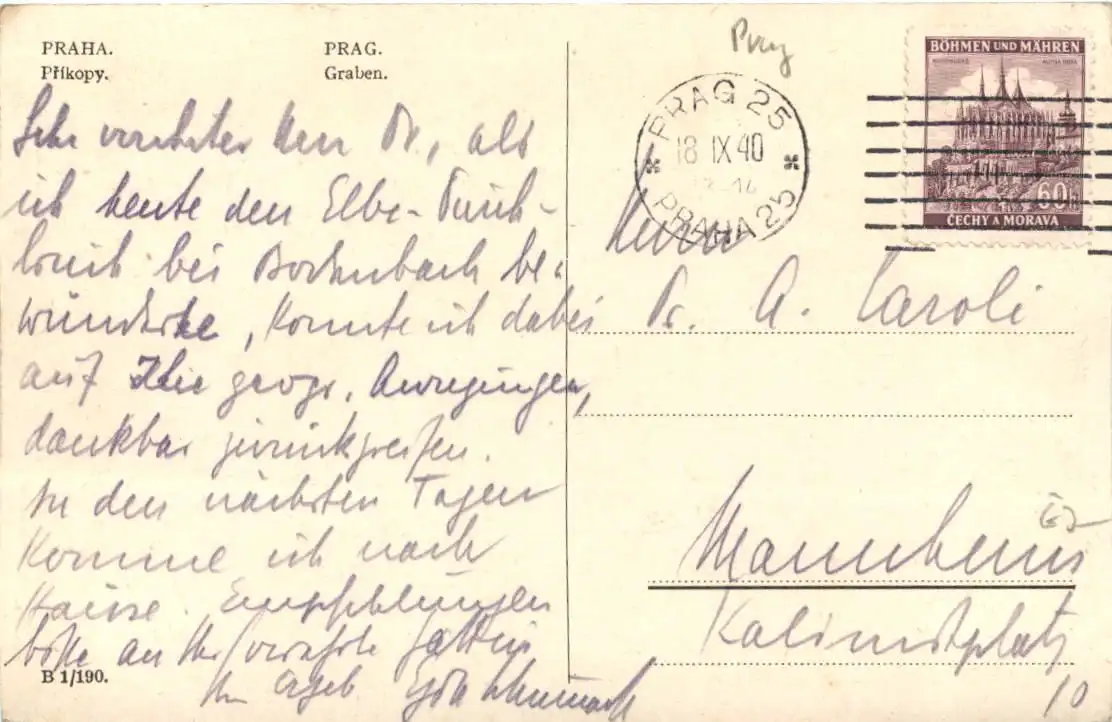 PRAHA.
Příkopy.
PRAG.
Graben.
Sehr verehrter Herr Dr., als
ich heute den Elbe-Durch-
bruch bei Bodenbach be-
wunderte, konnte ich dabei
auf Ihre geogr. Anregungen,
dankbar zurückgreifen.
In den nächsten Tagen
komme ich nach
Hause. Empfehlungen
bitte an Ihre verehrte Gattin
Ihr ergeb.
B 1/190.
Prag
PRAG 25
18 IX 40
PRAHA 25
BÖHMEN UND MÄHREN
60
ČECHY A MORAVA
Herrn
Dr. A. Caroli
Mannheim
10